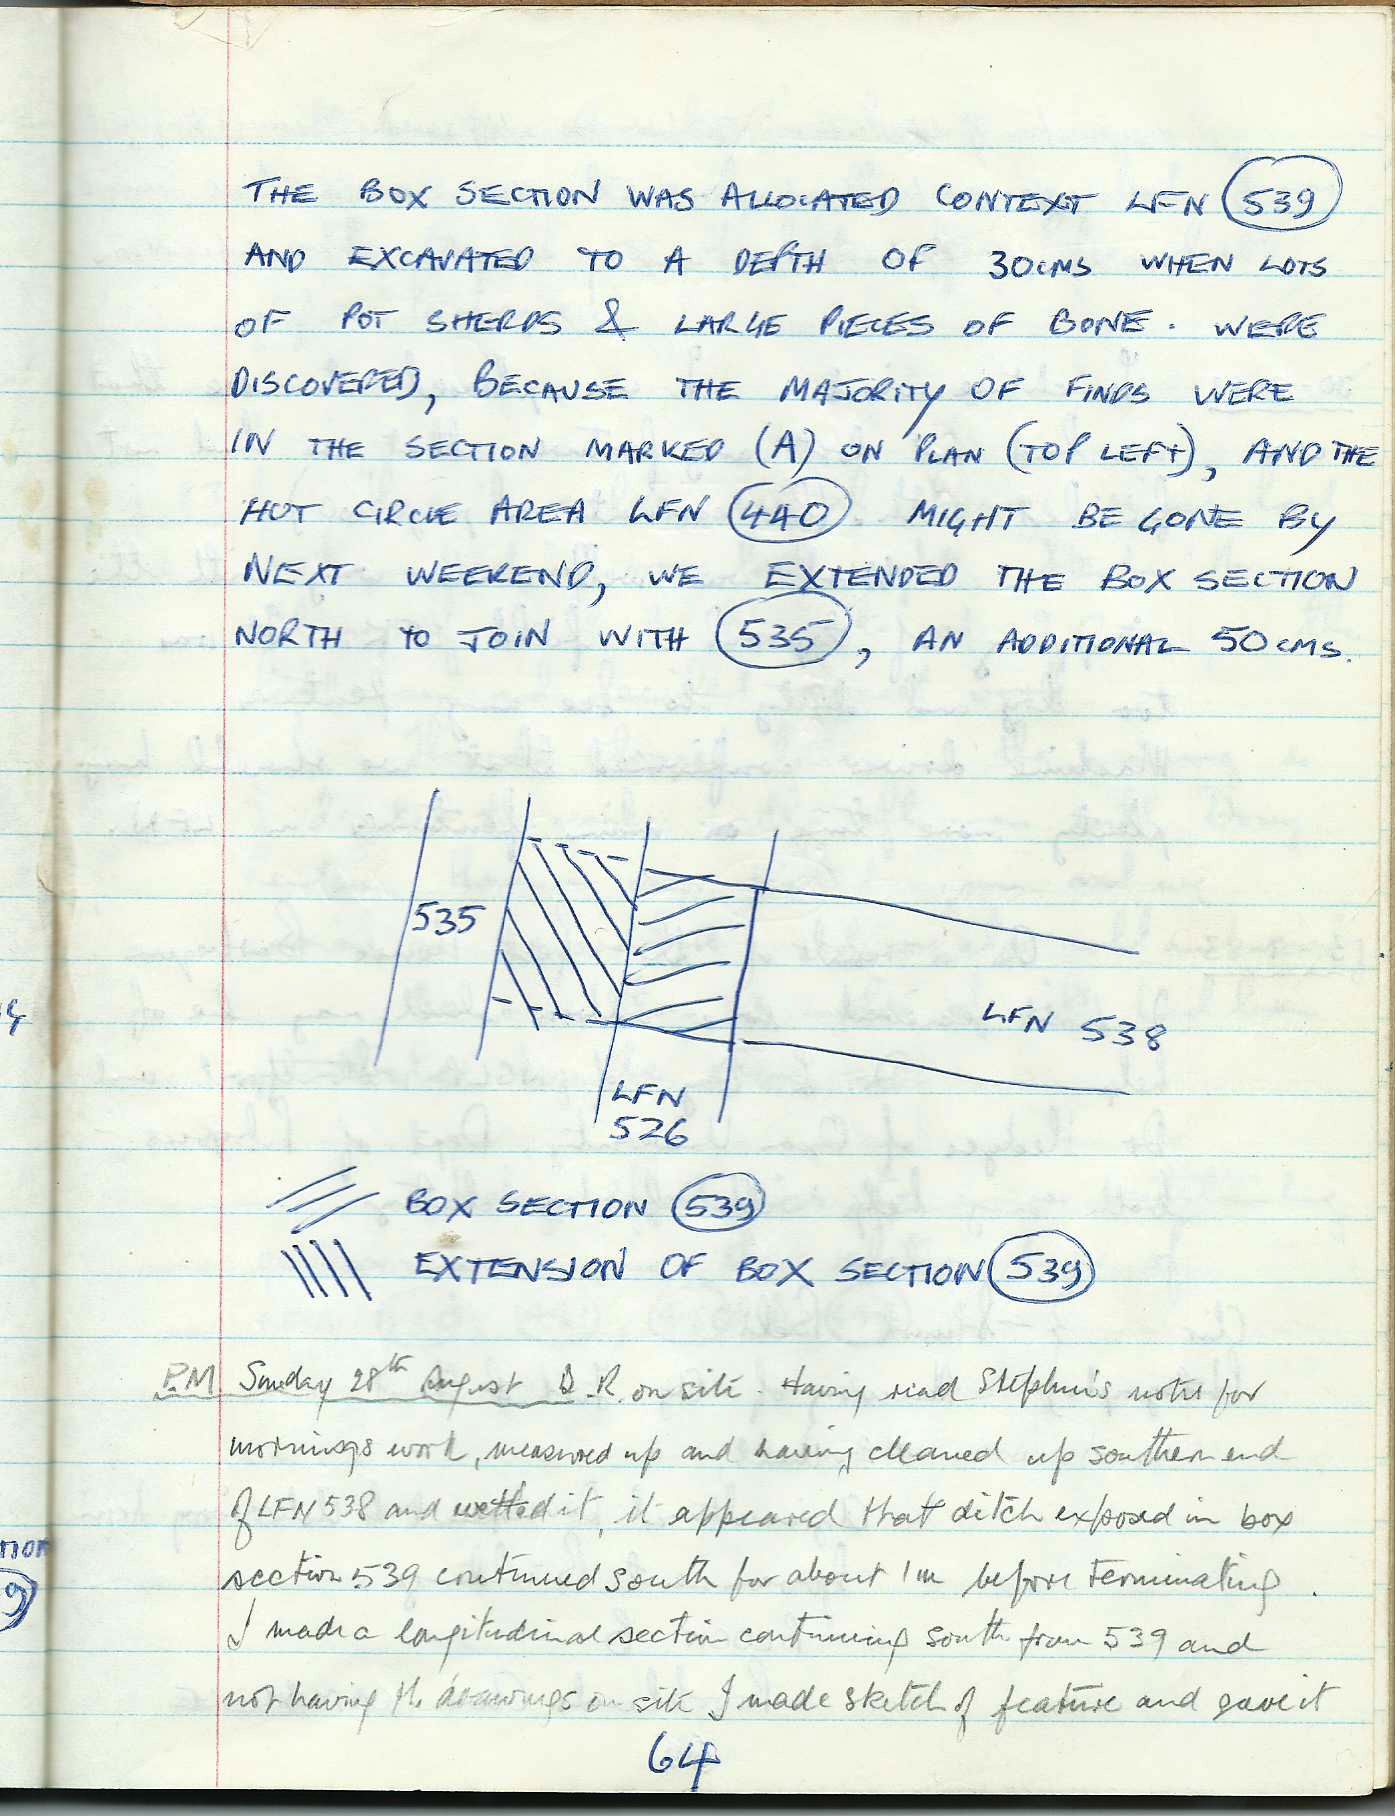 THE BOX SECTION WAS ALLOCATED CONTEXT LFN 539
AND EXCAVATED TO A DEPTH OF 30CMS WHEN LOTS
OF POT SHERDS & LARGE PIECES OF BONE. WERE
DISCOVERED, BECAUSE THE MAJORITY OF FINDS WERE
IN THE SECTION MARKED (A) ON PLAN (TOP LEFT), AND THE
HUT CIRCLE AREA LFN 440 MIGHT BE GONE BY
NEXT WEEKEND, WE EXTENDED THE BOX SECTION
NORTH TO JOIN WITH 535, AN ADDITIONAL 50CMS.
535
LFN 538
LFN
526
BOX SECTION 539
EXTENSION OF BOX SECTION 539
P.M Sunday 28th August D.R. on site. Having read Stephen's notes for
mornings work, measured up and having cleaned up southern end
of LFN 538 and wetted it, it appeared that ditch exposed in box
section 539 continued south for about 1m before terminating.
I made a longitudinal section continuing south from 539 and
not having the drawings on site I made sketch of feature and gave it
64